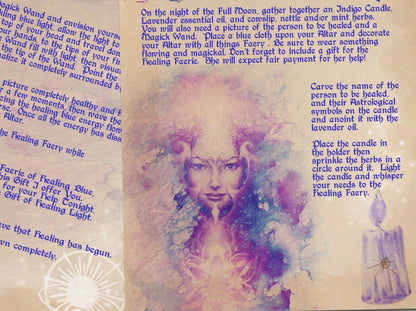 Magick Wand and envision yourself
healing blue light, allow the light to
top of your head and travel down
your hands to the tips of your fingers
Wand fill with light, then visualize
tip of the Wand. Point the
visualize it completely surrounded by

picture completely healthy and
for a few moments, then wave the
the healing blue energy flow
Once all the energy has
Altar.

the Healing Faery while

Faerie of Healing Blue,
this Gift I offer You,
for your Help Tonight
Gift of Healing Light.

that Healing has begun.
down completely.

On the night of the Full Moon, gather together an Indigo Candle,
Lavender essential oil, and cowslip, nettle and/or mint herbs.
You will also need a picture of the person to be healed and a
Magick Wand. Place a blue cloth upon your Altar and decorate
your Altar with all things Faery . Be sure to wear something
flowing and magickal. Don't forget to include a gift for the
Healing Faerie. She will expect fair payment for her help!

Carve the name of
the person
to be healed,
and their Astrological
symbols on the candle
and anoint it with the
lavender oil.

Place the candle in
the holder then
sprinkle the herbs in a
circle around it. Light
the candle and whisper
your needs to the
Healing Faery.